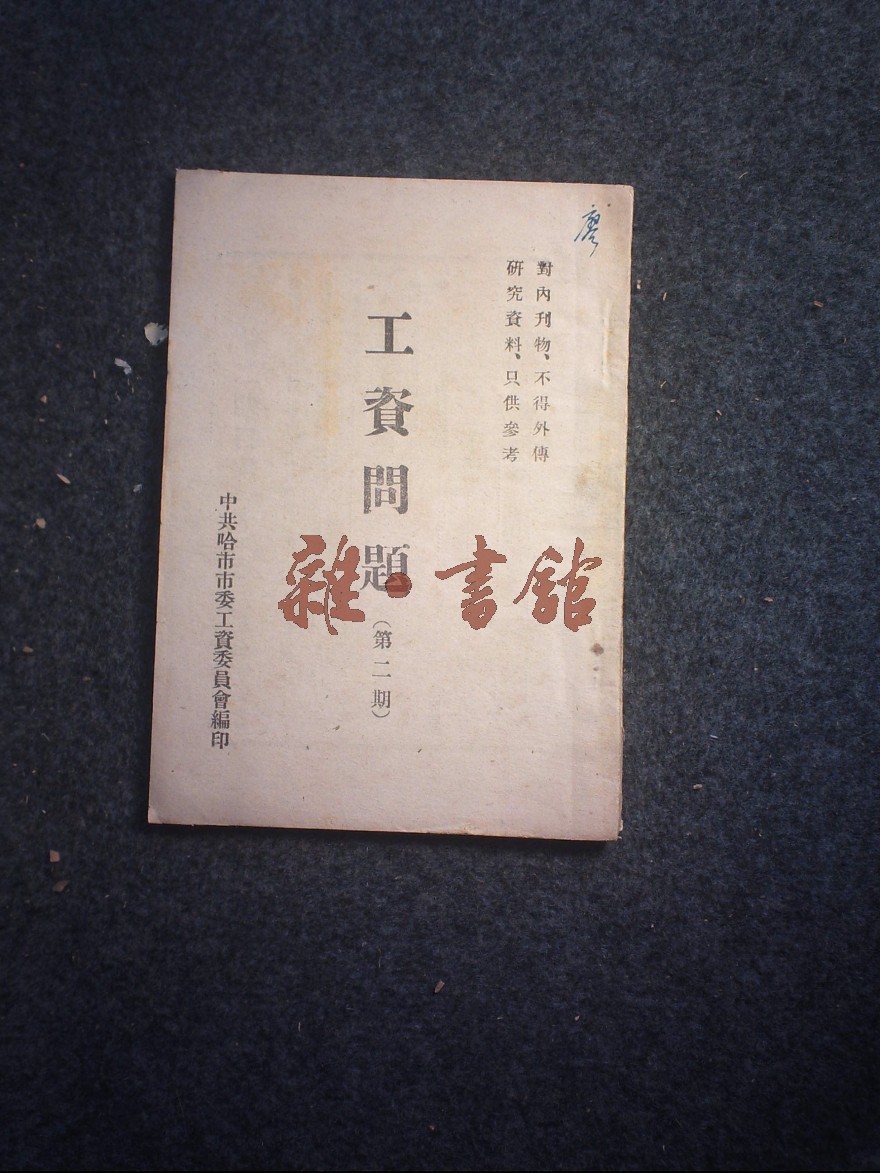 廖
對內刊物、不得外傳
研究資料、只供參考
工資問題
（第二期）
中共哈市市委工資委員會編印
雜·書館